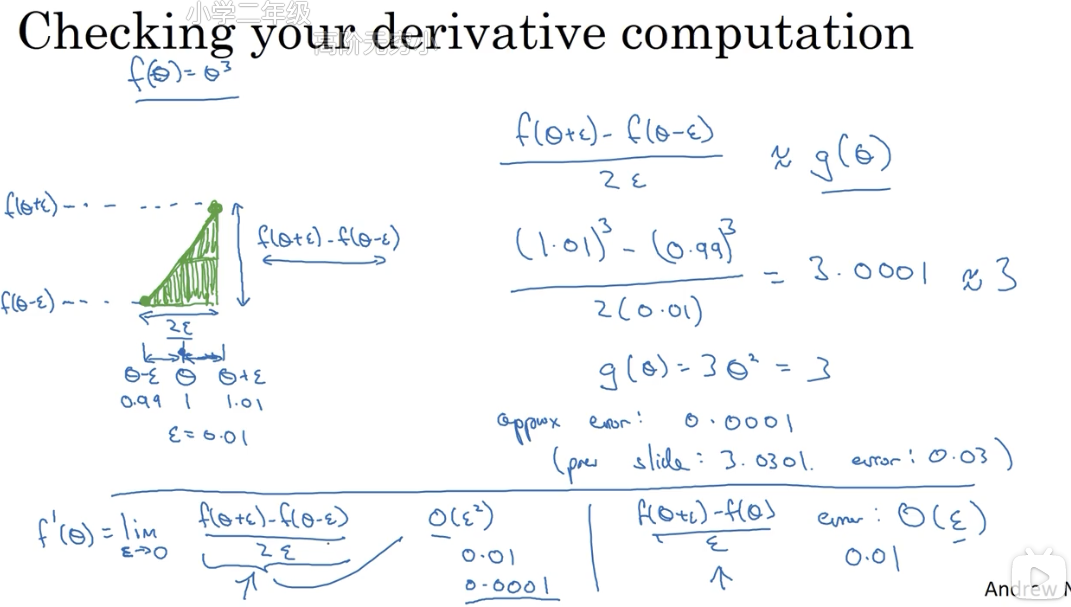 小学二年级
Checking your derivative computation
高阶无穷小
f(θ) = θ³
f(θ+ε) - f(θ-ε)
2ε
≈ g(θ)
f(θ+ε)
f(θ+ε) - f(θ-ε)
f(θ-ε)
2ε
θ-ε θ θ+ε
0.99 1 1.01
ε = 0.01
(1.01)³ - (0.99)³
2(0.01)
= 3.0001 ≈ 3
g(θ) = 3θ² = 3
approx error: 0.0001
(prev slide: 3.0301. error: 0.03)
f'(θ) = lim
ε→0
f(θ+ε) - f(θ-ε)
2ε
O(ε²)
0.01
0.0001
f(θ+ε) - f(θ)
ε
error: O(ε)
0.01
Andrew N